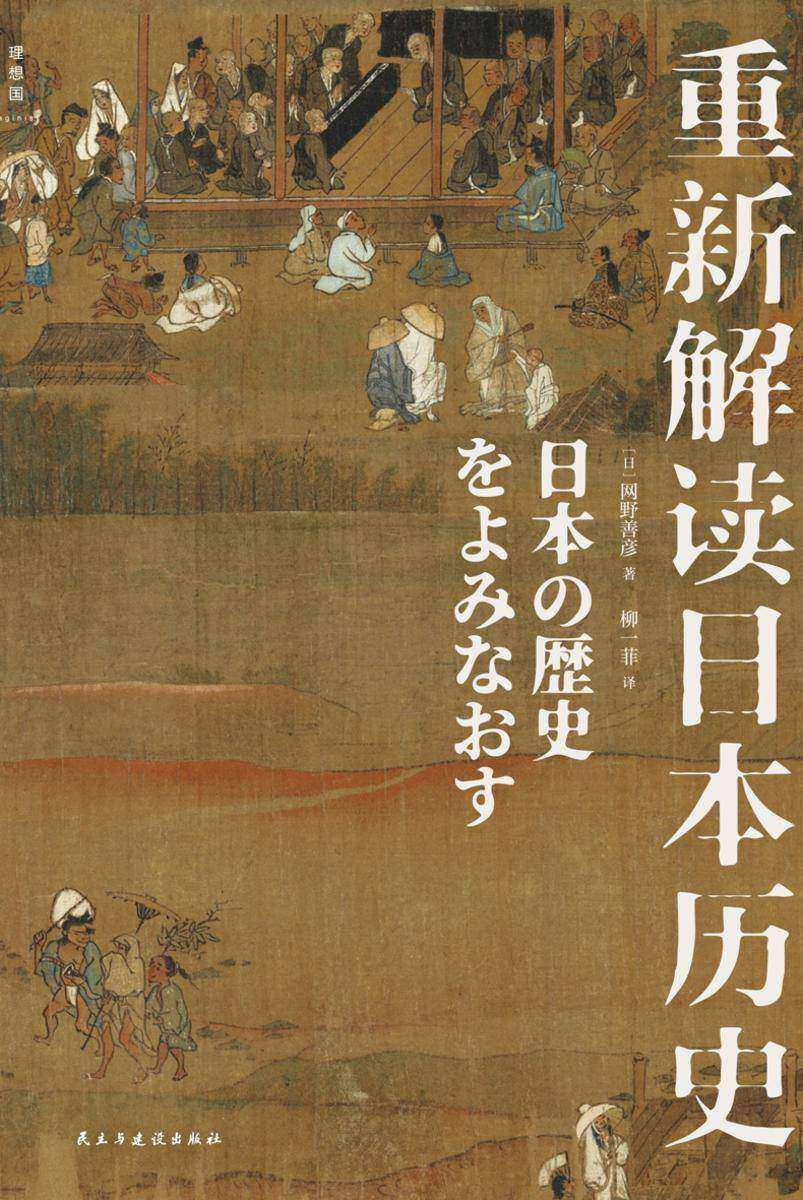 重新解读日本历史
[日]网野善彦 著 柳一菲 译
日本の歴史
をよみなおす
理想国
民主与建设出版社